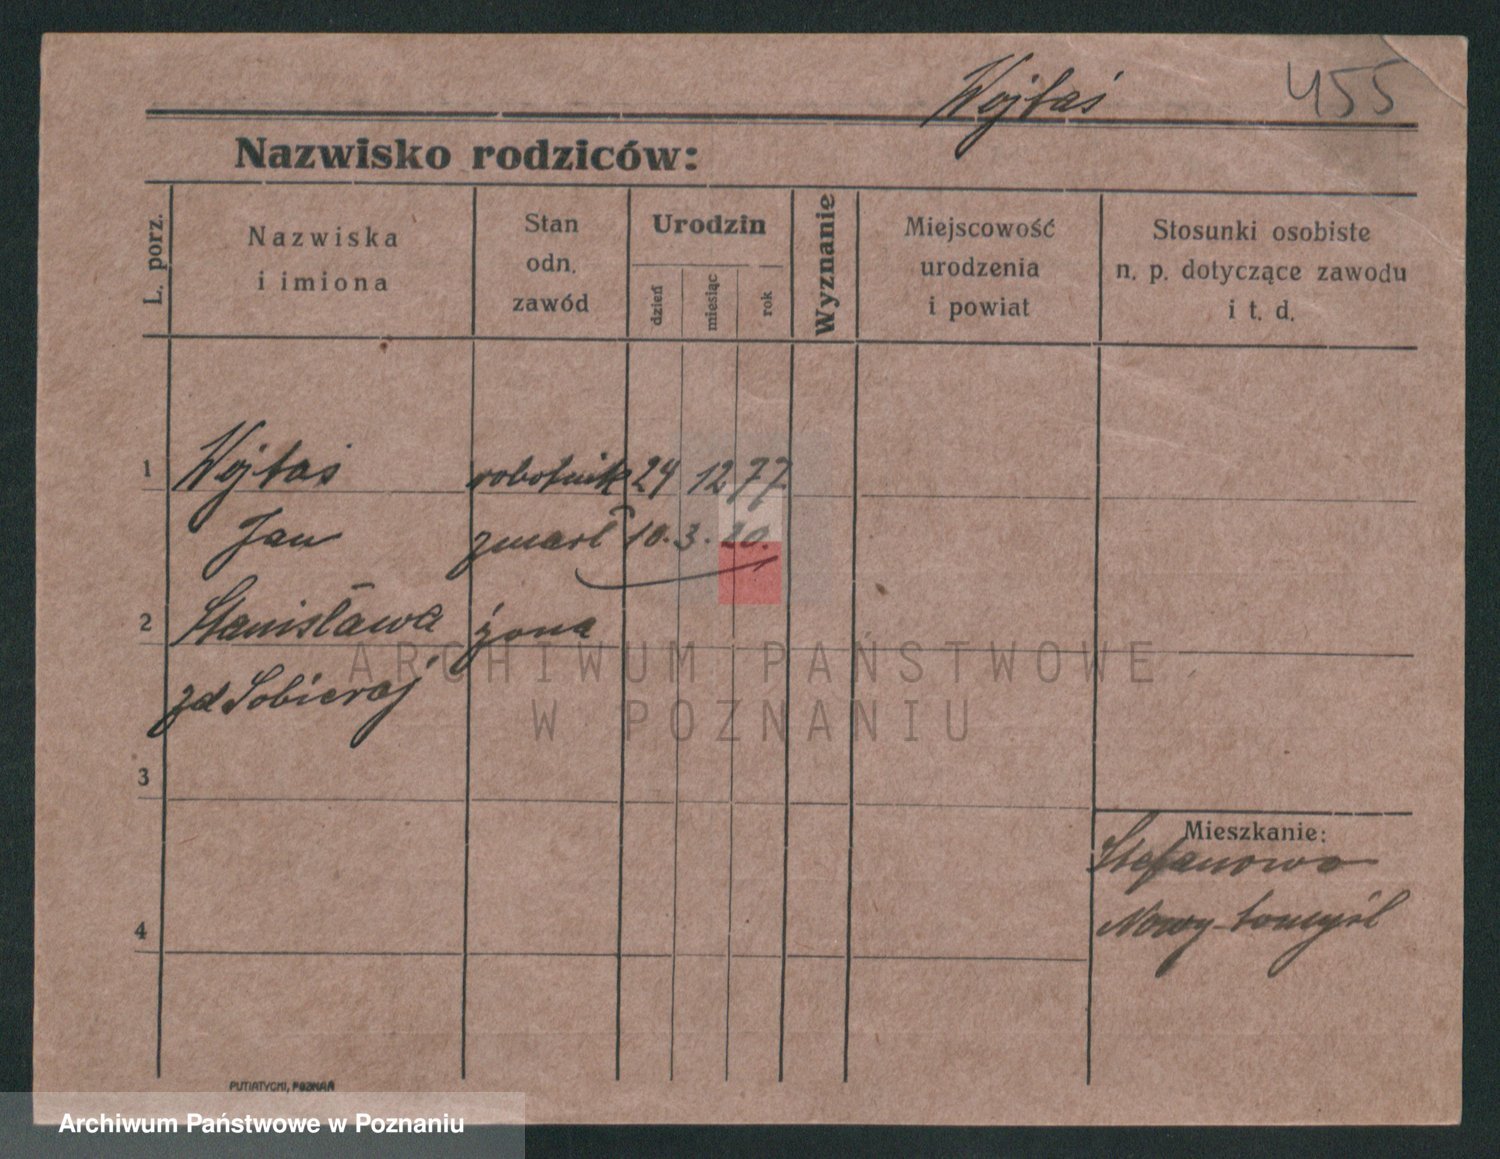 Wojtaś 455
Nazwisko rodziców:
L. porz.
Nazwiska
i imiona
Stan
odn.
zawód
Urodzin
dzień
miesiąc
rok
Wyznanie
Miejscowość
urodzenia
i powiat
Stosunki osobiste
n. p. dotyczące zawodu
i t. d.
1 Wojtaś robotnik 24 12 77
Jan zmarł 10. 3. 20.
2 Stanisława żona
zd Sobieraj
ARCHIWUM PAŃSTWOWE
W POZNANIU
3
Mieszkanie:
Stefanowo
Nowy-tomyśl
4
PUTIATYCKI, POZNAŃ
Archiwum Państwowe w Poznaniu